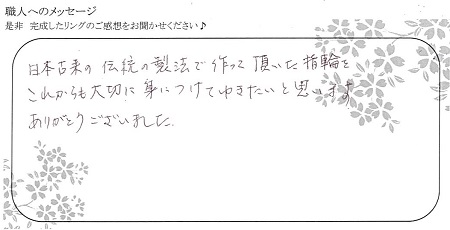 職人へのメッセージ
是非 完成したリングのご感想をお聞かせください♪
日本古来の伝統の製法で作って頂いた指輪を
これからも大切に身につけてゆきたいと思います
ありがとうございました。